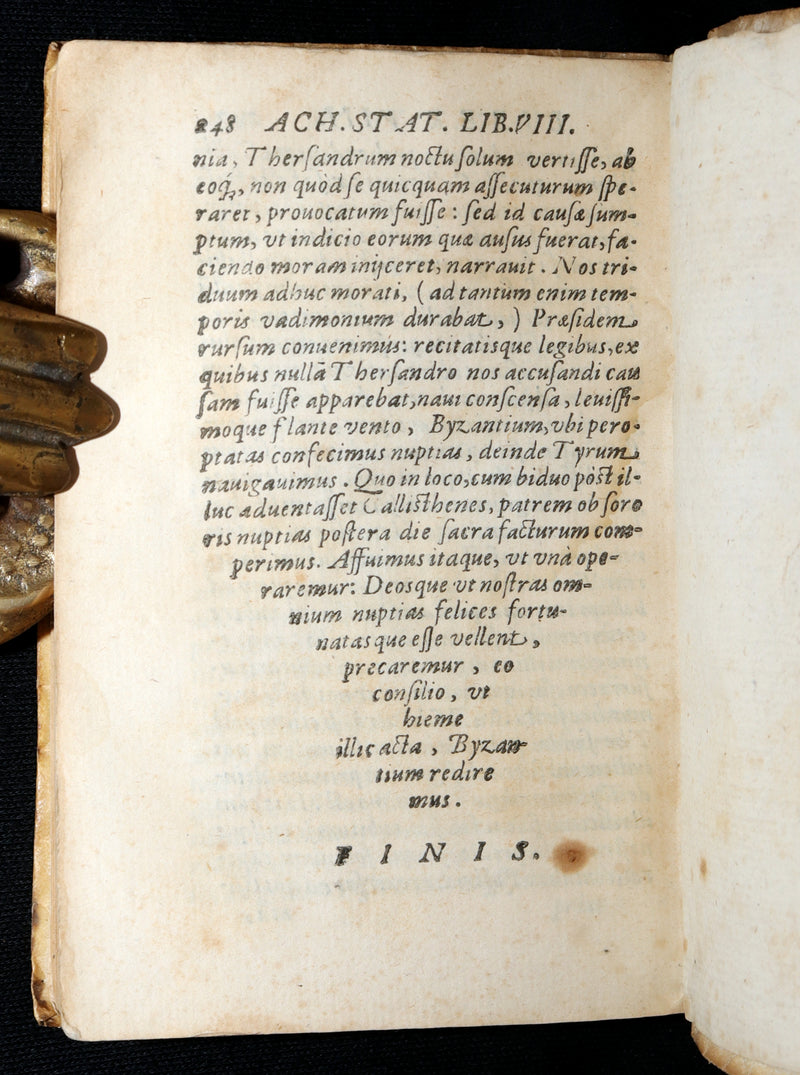 248 ACH. STAT. LIB. VIII.
nia, Therſandrum noctu ſolum vertiſſe, ab
eoq́;, non quòd ſe quicquam aſſecuturum ſpe-
raret, prouocatum fuiſſe : ſed id cauſæ ſum-
ptum, vt indicio eorum quæ auſus fuerat, fa-
ciendo moram inijceret, narrauit. Nos tri-
duum adhuc morati, (ad tantum enim tem-
poris vadimonium durabat,) Præſidem
rurſum conuenimus: recitatisque legibus, ex
quibus nullã Therſandro nos accuſandi cau
ſam fuiſſe apparebat, naui conſcenſa, leuiſſi-
moque flante vento, Byzantium, vbi pero-
ptatas confecimus nuptias, deinde Tyrum
nauigauimus. Quo in loco, cum biduo pòſt il-
luc aduentaſſet Calliſthenes, patrem ob ſoro
ris nuptias poſtera die ſacra facturum com-
perimus. Affuimus itaque, vt vnà ope-
raremur: Deosque vt noſtras om-
nium nuptias felices fortu-
natasque eſſe vellent,
precaremur, eo
conſilio, vt
hieme
illic acta, Byzan-
tium redire
mus.
FINIS.